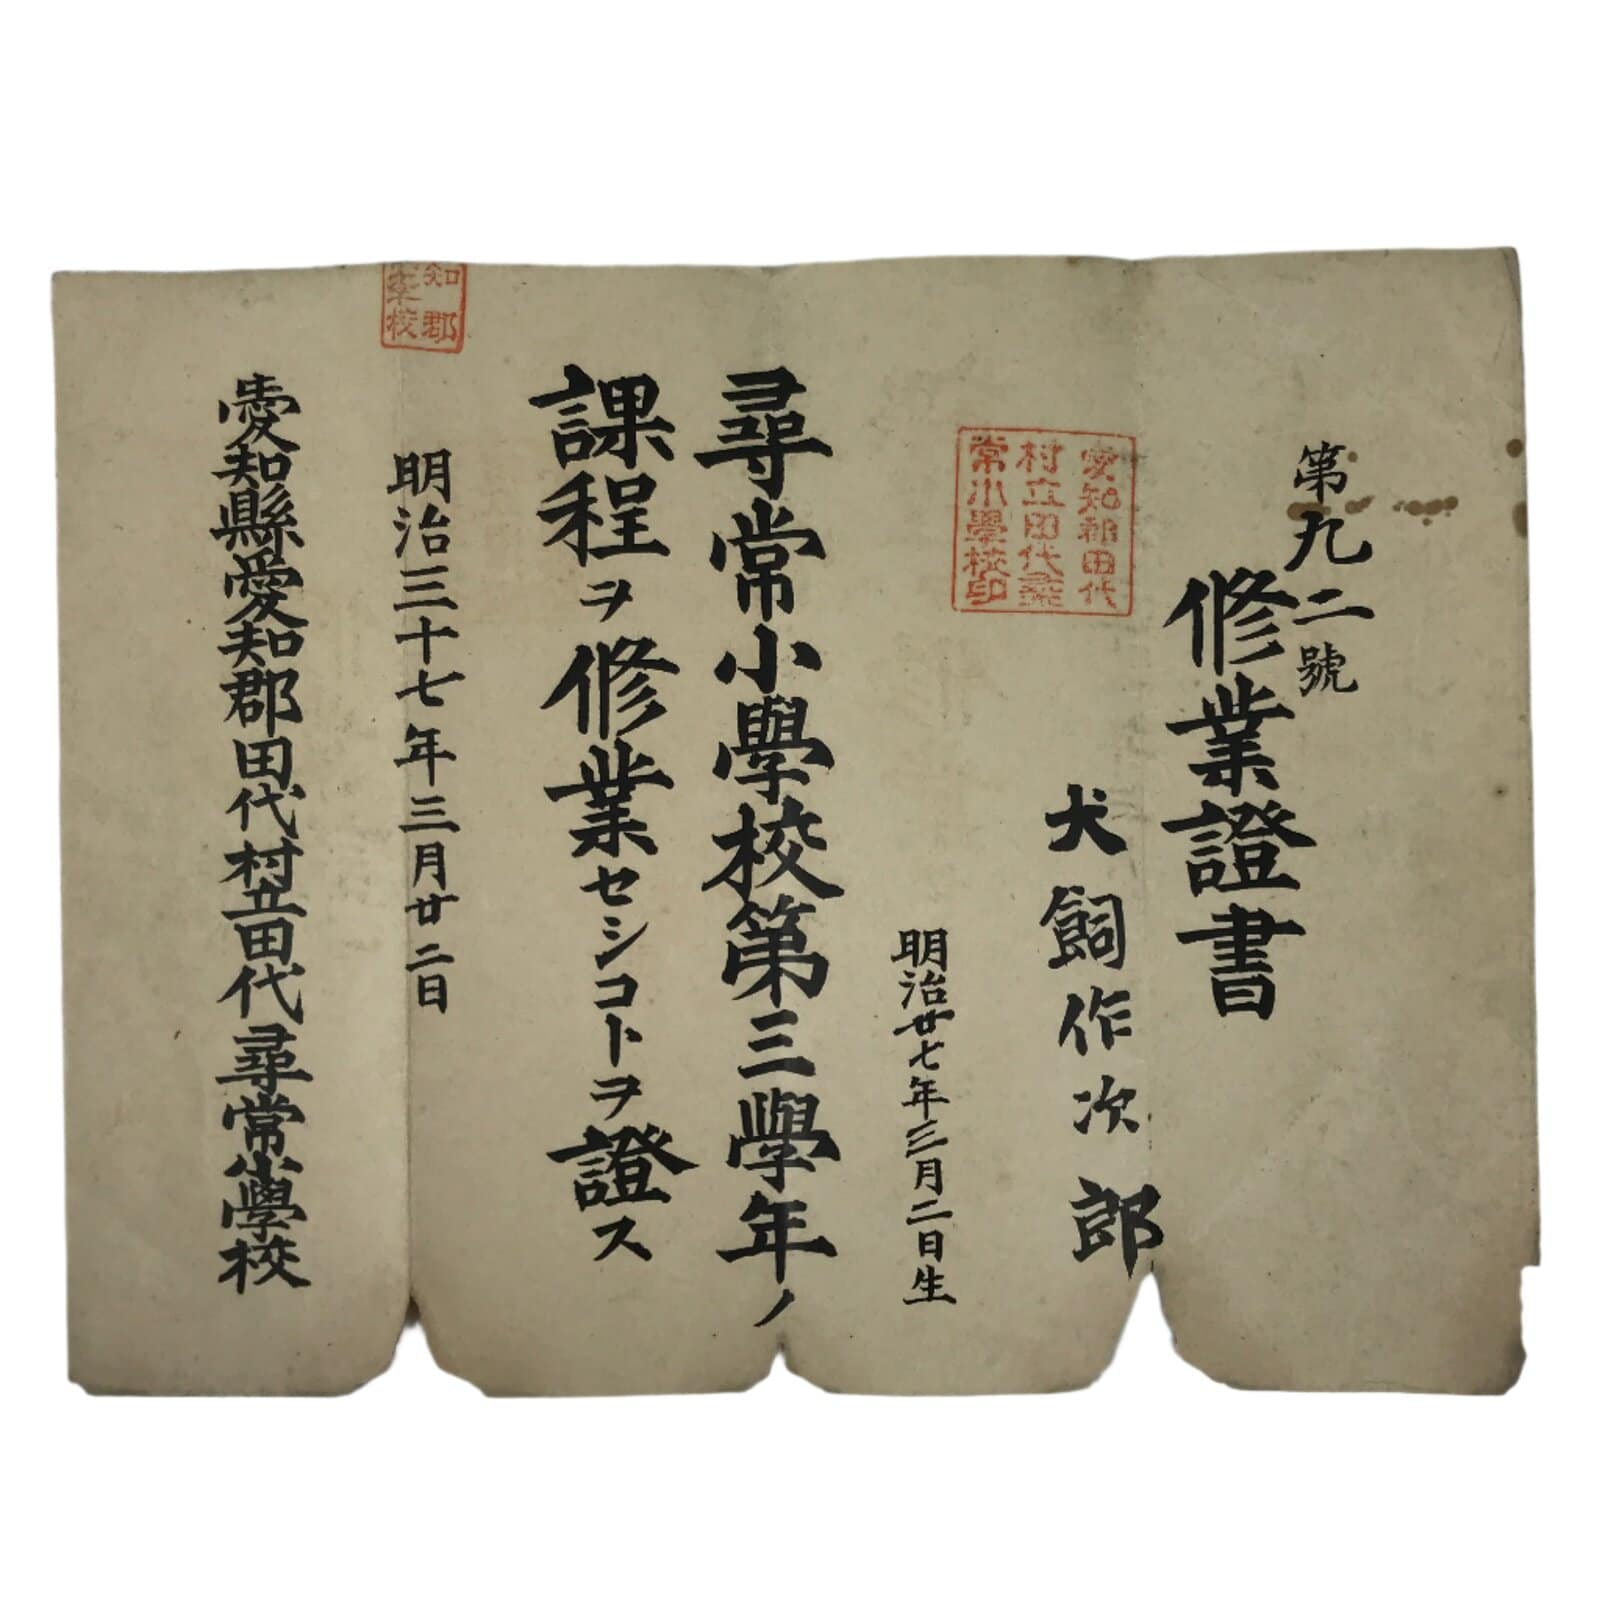 第九二號
修業證書
犬飼作次郎
愛知郡田代
村立田代尋
常小學校印
明治廿七年三月二日生
尋常小學校第三學年ノ
課程ヲ修業セシコトヲ證ス
明治三十七年三月廿二日
知郡
校
愛知縣愛知郡田代村立田代尋常小學校